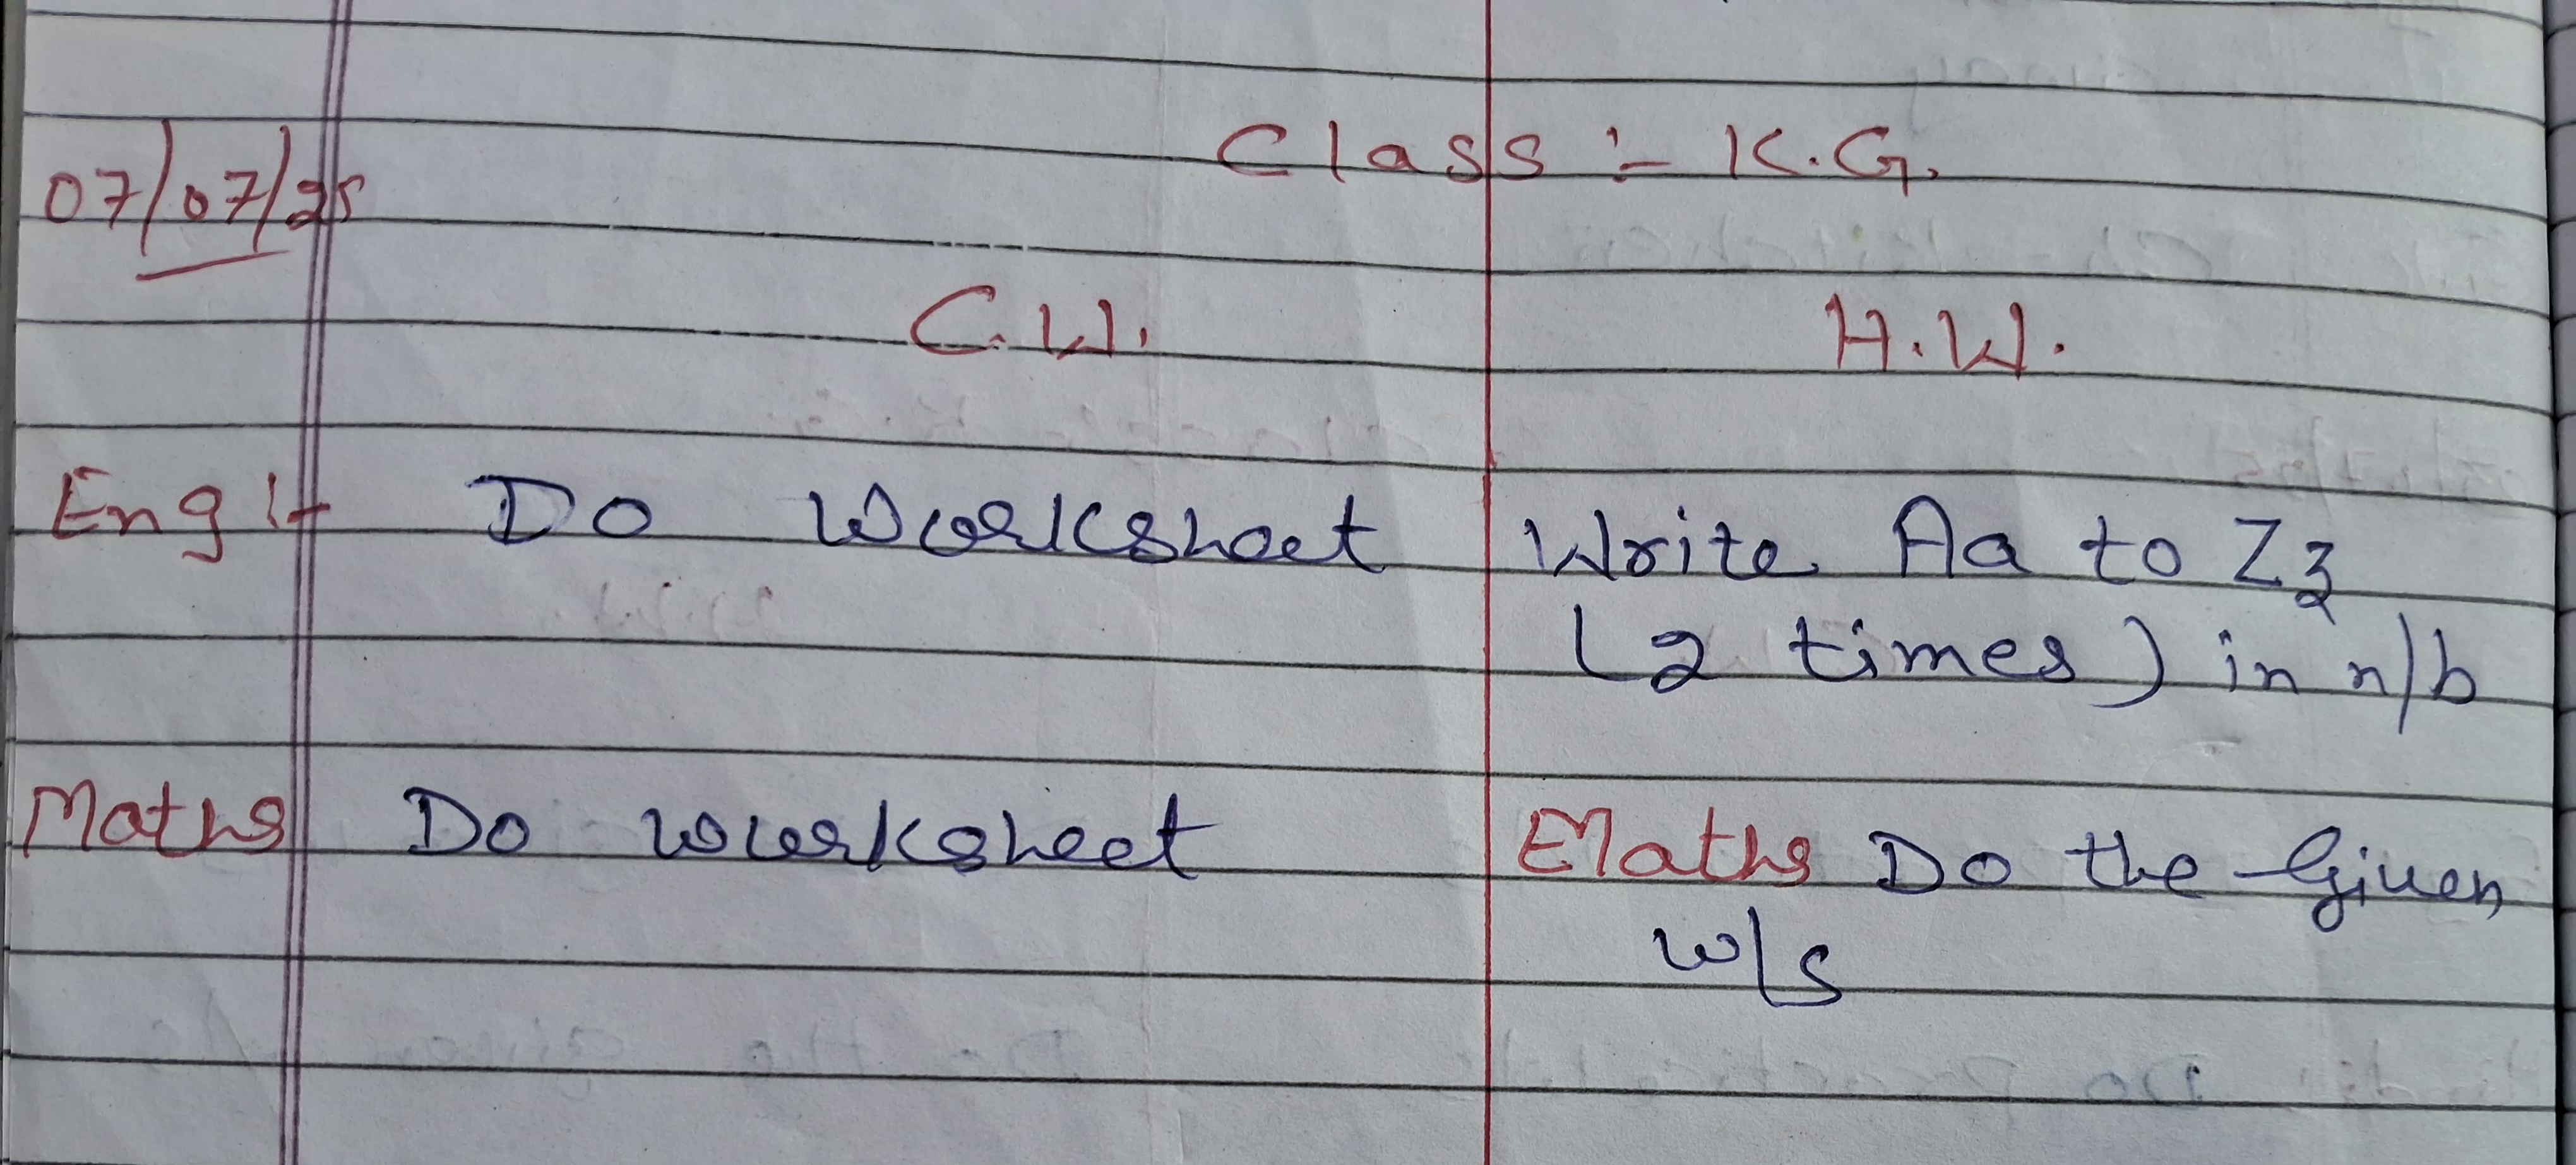 Class :- K.G.
07/07/25
C.W. H.W.
Eng :- Do Worksheet Write Aa to Zz
(2 times) in n/b
Maths Do worksheet Maths Do the Given
w/s